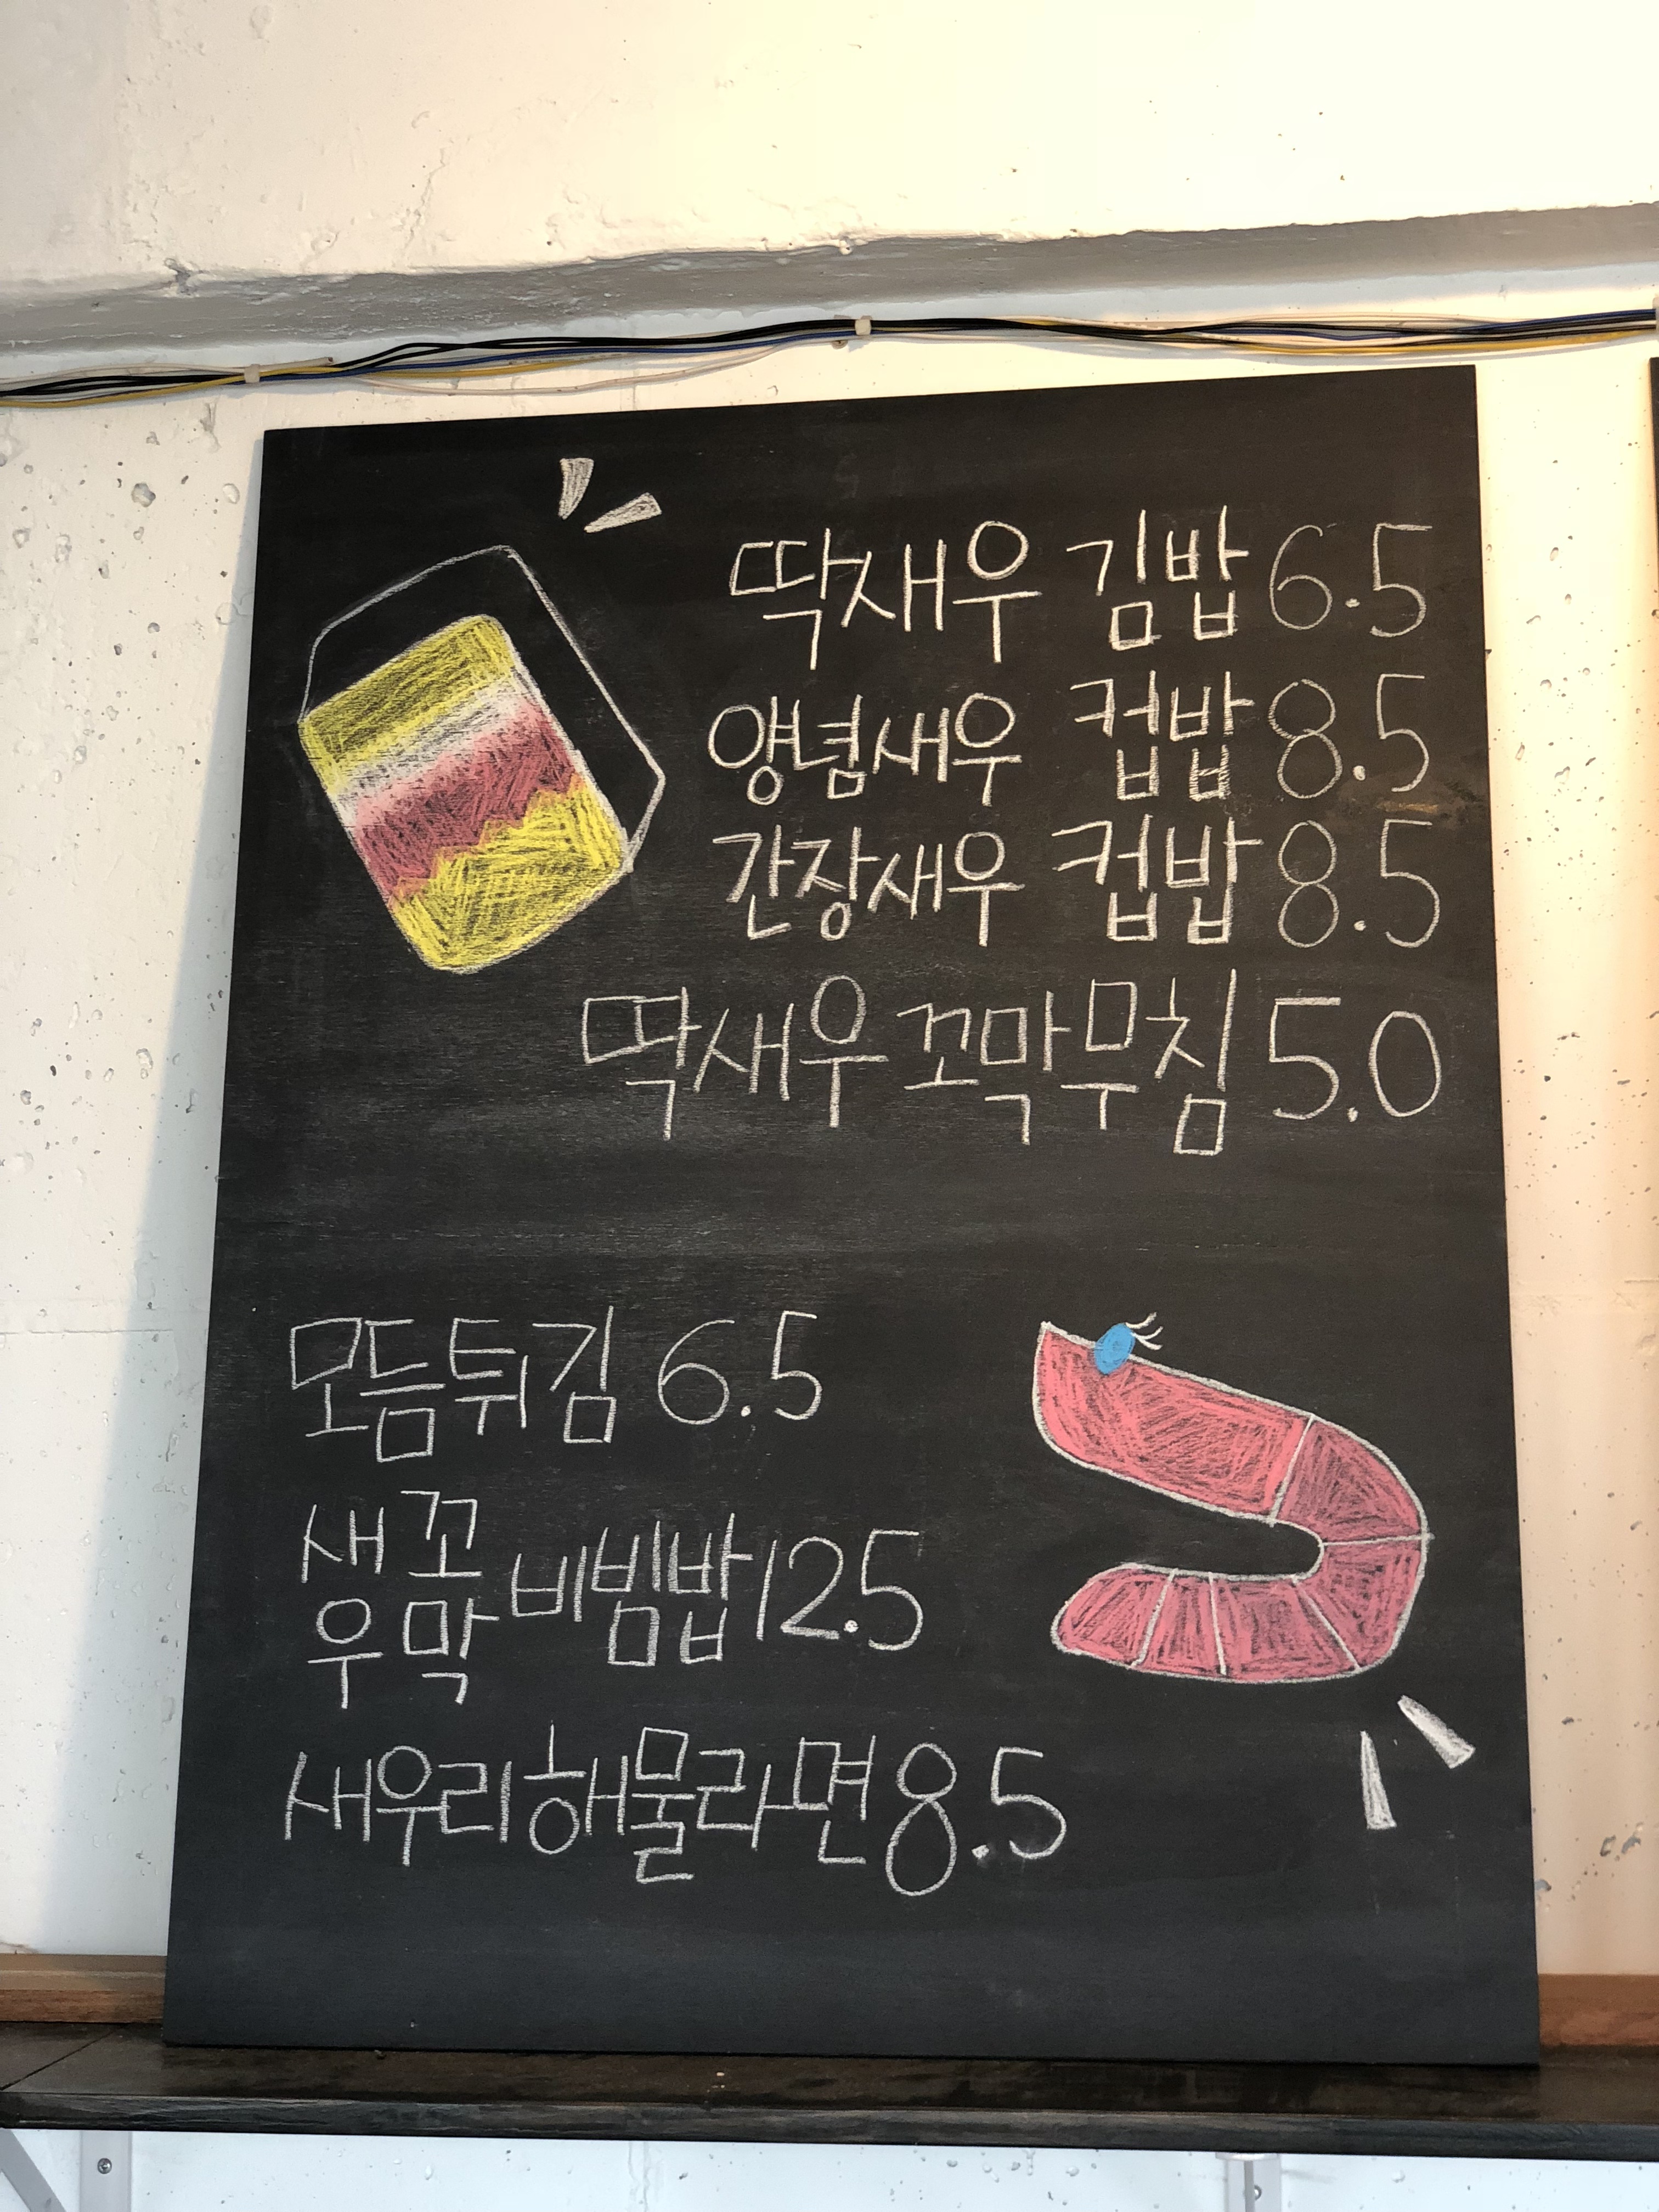 딱새우 김밥 6.5
양념새우 컵밥 8.5
간장새우 컵밥 8.5
딱새우 꼬막무침 5.0
모듬튀김 6.5
새우 꼬막 비빔밥 12.5
새우리해물라면 8.5